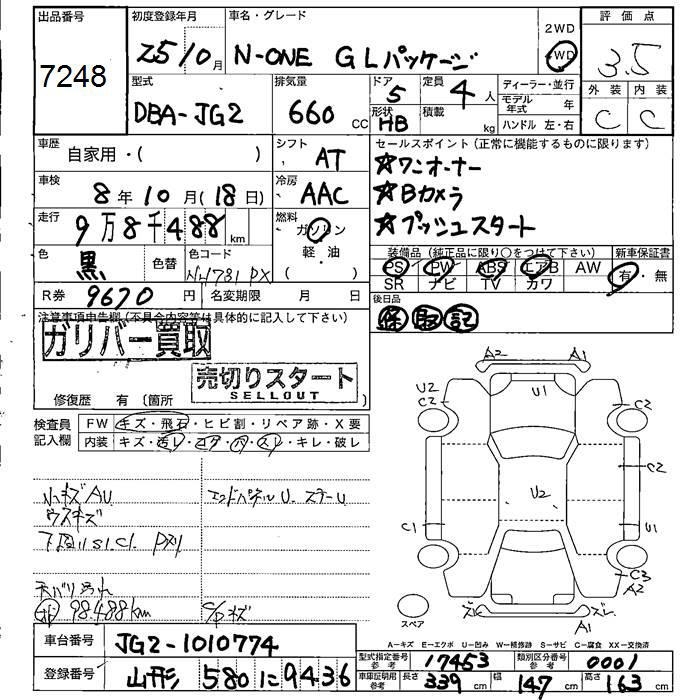 出品番号 初度登録年月 車名・グレード 2WD 評価点
7248 25 10月 N-ONE GLパッケージ 4WD 3.5
型式 排気量 ドア 定員 ディーラー・並行 外装 内装
DBA-JG2 660 CC 5 4人 モデル年式 年 C C
形状 HB 積載 kg ハンドル 左・右
車歴 自家用・( ) シフト AT セールスポイント(正常に機能するものに限ります)
車検 8年10月(18日) 冷房 AAC ☆ワンオーナー
☆Bカメラ
走行 9万8千488km 燃料 ガソリン ☆プッシュスタート
軽・油
( )
色 黒 色替 色コード NH731PX 装備品(純正品に限り○をつけて下さい) 新車保証書
PS PW ABS エアB AW 有・無
SR ナビ TV カワ
R券 9670円 名変期限 月 日 後日品
保 取 記
注意事項申告欄(不具合内容等は具体的に記入して下さい)
ガリバー買取
売切りスタート
SELLOUT
修復歴 有 〔箇所 〕
検査員記入欄 FW キズ・飛石・ヒビ割・リペア跡・X要
内装 キズ・汚レ・コゲ・穴・スレ・キレ・破レ
小キズAU エンドパネルU ステーU
ウスキズ
下回りS1.C1.
天バリ汚れ
98.488km C/Pキズ
A2 A1
U2 U1
C2 C2
C2
U2
C1 U1
C3
A2
ズレ ズレ
A1
スペア
A-キズ E-エクボ U-凹み W-補修跡 S-サビ C-腐食 XX-交換済
車台番号 JG2-1010774 型式指定番号 参考 17453 類別区分番号 参考 0001
登録番号 山形 580 に 9436 車庫証明用 参考 長さ 339cm 幅 147cm 高さ 163cm